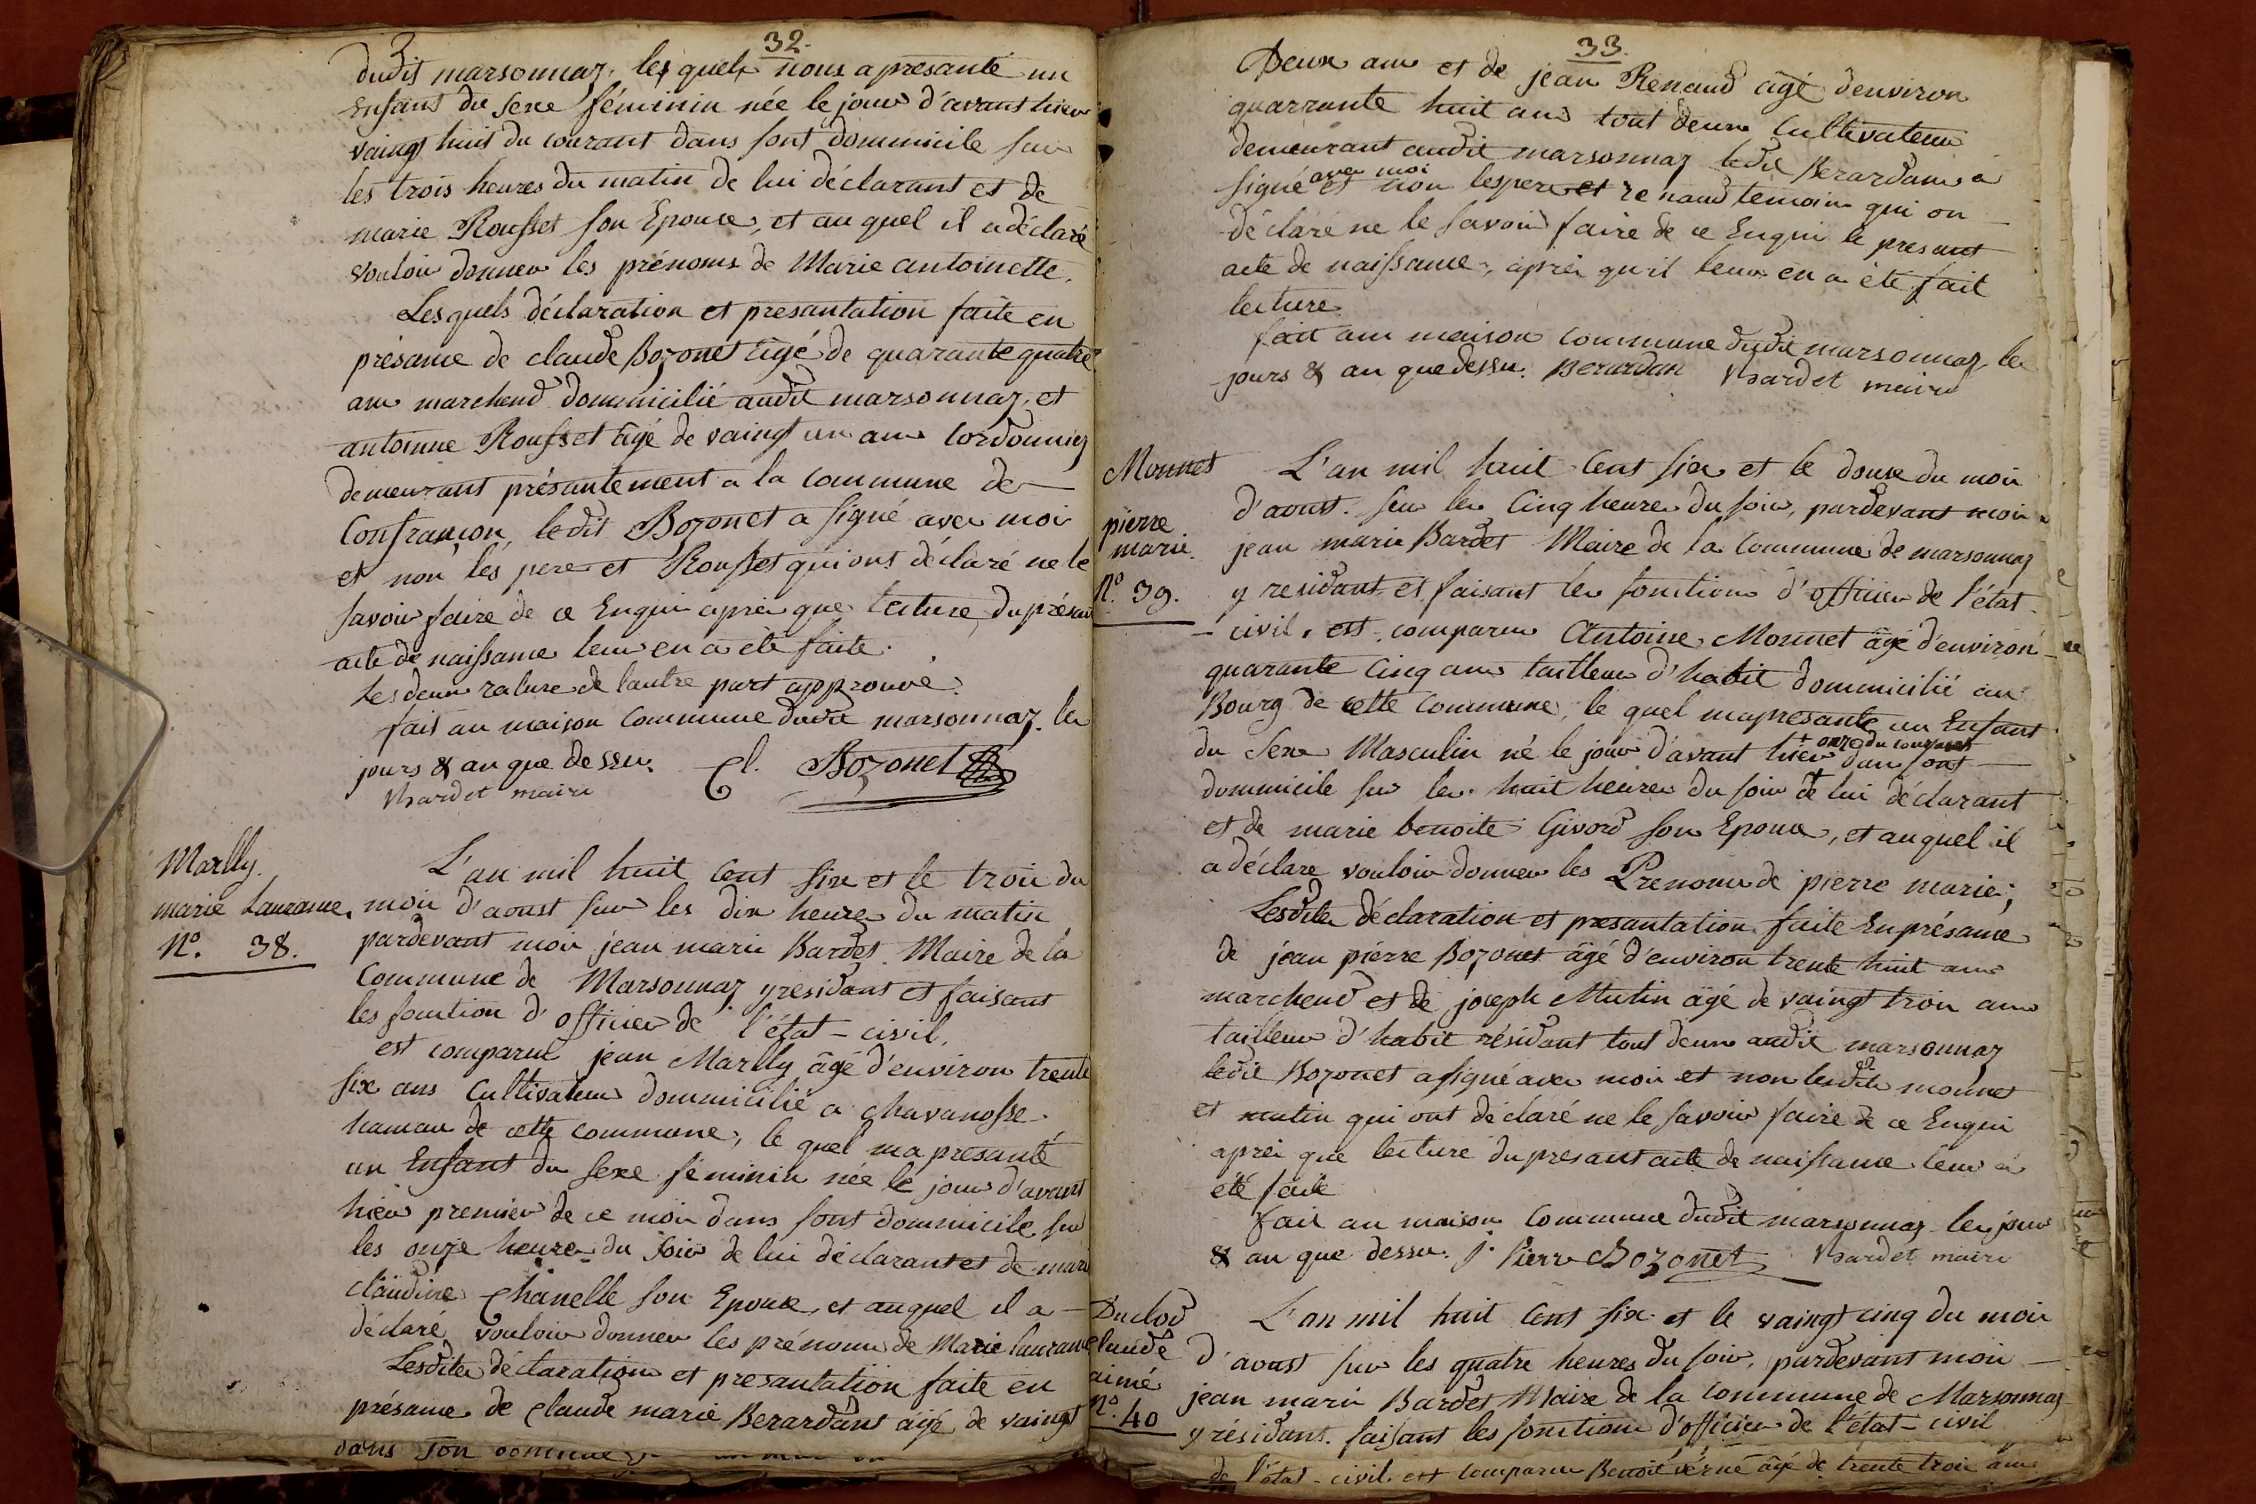 32.
dudit marsonnaz, les quels nous a presanté un
Enfant du sexe féminin née le jour d'avant hier
vaingt huit du courant dans sont dommicile sur
les trois heures du matin de lui déclarant et de
marie Rousset son Epouse, et au quel il a déclaré
vouloir donner les prénoms de Marie antoinette.
Les quels déclaration et presantation faite en
présance de claude Bozonet âgé de quarante quatre
ans marchend dommicilié audit marsonnaz, et
antoinne Rousset âgé de vaingt un ans cordonniez
demeurant présantement a la commune de
Confrançon, ledit Bozonet a signé avec moi
et non les pere et Rousset qui ont déclaré ne le
savoir faire de ce Enqui aprés que lecture du présant
acte de naissance leur en a été faite.
Les deux rature de l'autre part approuvé.
fait au maison commune dudit marsonnaz. les
jours & an que dessu. Cl. Bozonet
Bardet maire
Marlly.
marie Laurance.
N.º 38.
L'an mil huit Cent six et le trois du
mois d'aoust sur les dix heures du matin
pardevant moi jean marie Bardet. Maire de la
Commune de Marsonnaz y residant et faisant
les fonction d'officier de l'état-civil,
est comparu jean Marlly âgé d'environ trente
six ans Cultivateur dommicilié a chavanosse
hameau de cette commune, le quel ma presanté
un Enfant du sexe féminin née le jour d'avant
hier premier de ce moi dans sont dommicile sur
les onze heures du soir de lui déclarant et de marie
claudine Chanelle son Epouse, et auquel il a
déclaré vouloir donner les prénoms de Marie laurance
Lesdites déclaration et presantation faite en
présance de Claude marie Berardant âgé de vaingt
33.
Deux ans et de jean Renaud âgé d'environ
quarrante huit ans tout deux Cultivateur
demeurant audit marsonnaz ledit Berardan a
signé avec moi et non lespere et renaud temoin qui on
déclaré ne le savoir faire de ce Enqui le presant
acte de naissance, aprés qu'il leur en a été fait
lecture.
fait au maison commune dudit marsonnaz, les
jours & an que dessu. Berardan Bardet maire
Monnet
pierre
marie.
N.º 39.
L'an mil huit Cent six et le douse du moi
d'aoust. sur les Cinq heures du soir, pardevant moi
jean marie Bardet Maire de la Commune de marsonnaz
y residant et faisant les fonction d'officier de l'état
civil, est comparu Antoine Monnet âgé d'environ
quarante Cinq ans tailleur d'habit dommicilié au
Bourg de cette Commune, le quel ma presanté un Enfant
du sexe Masculin né le jour d'avant hier + onze du courant dans sont
dommicile sur les huit heures du soir de lui déclarant
et de marie benoite Givord son Epouse, et auquel il
a déclare vouloir donner les Prenoms de pierre marie;
Lesdites déclaration et presantation faite En présance
de jean pierre Bozonet âgé d'environ trente huit ans
marchend et de joseph Mutin âgé de vaingt trois ans
tailleur d'habit résidant tout deux audit marsonnaz
ledit Bozonet a signé avec moi et non lesdits monnet
et mutin qui ont déclaré ne le savoir faire de ce Enqui
aprés que lecture du presant acte de naissance leur a
été faite
fait au maison Commune dudit marsonnaz les jour
& an que dessu. j. Pierre Bozonet Bardet maire
Duclod
claude
aimé
N.º 40
L'an mil huit Cent six et le vaingt cinq du moi
d'aoust sur les quatre heures du soir, pardevant moi
jean marie Bardet Maire de la Commune de Marsonnaz
y résidant. faisant les fonctions d'officier de l'état-civil
de l'état-civil. est comparu Benoit verne âgé de trente trois ans